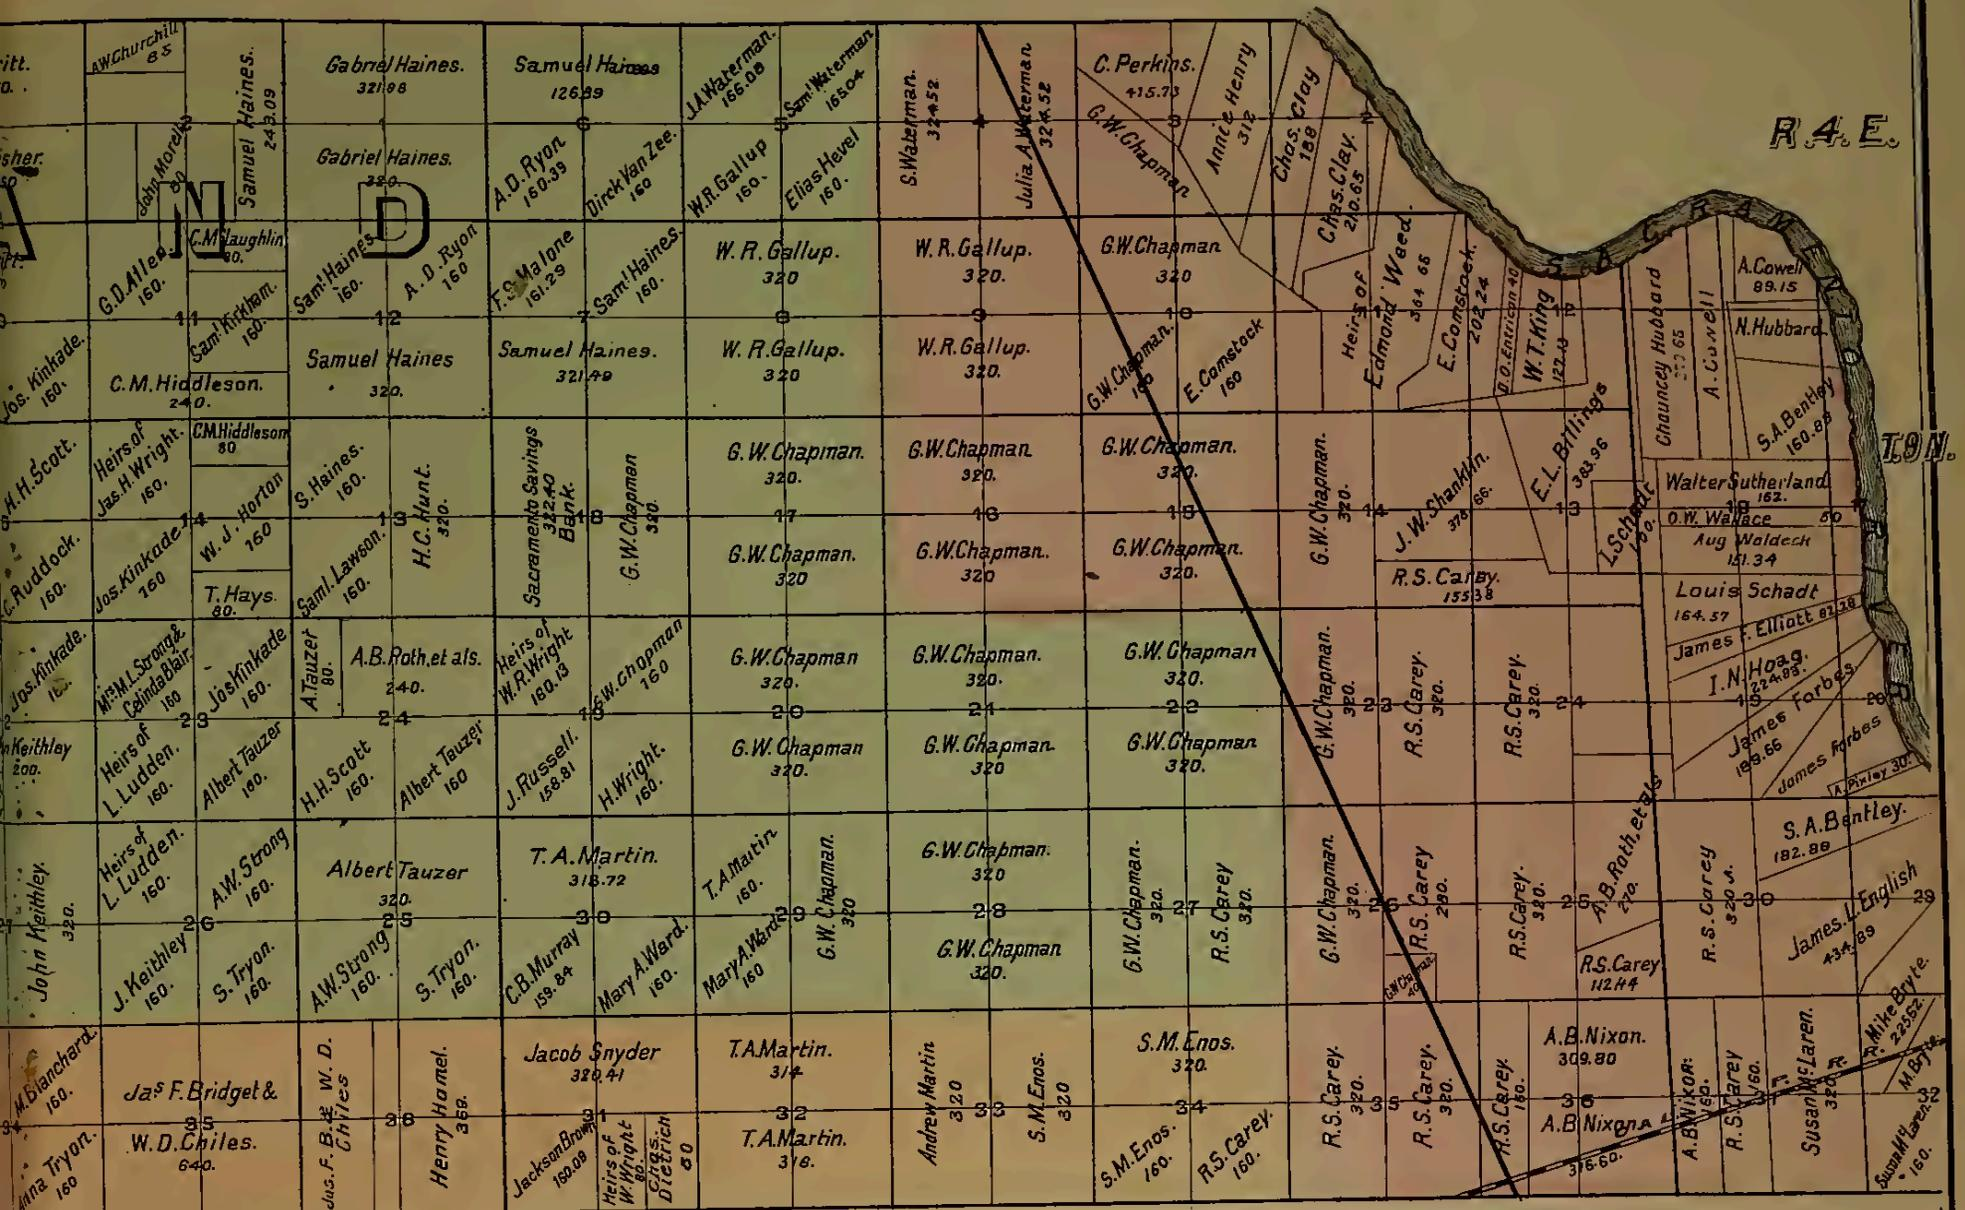 A.W.Churchill
85
Samuel Haines.
243.09
Gabriel Haines.
321.98
Samuel Haines
126.89
J.A.Waterman.
166.08
Saml Waterman
165.04
S.Waterman.
324.52
Julia A.Waterman
324.52
C. Perkins.
415.73
G.W.Chapman
Annie Henry
312
Chas. Clay
188
Chas. Clay.
210.65
R.4.E.
John Morell
80
Gabriel Haines.
320.
A.D.Ryon
160.39
Dirck Van Zee.
160
W.R.Gallup
160.
Elias Hevel
160.
N D
G.D.Allen.
160.
C.McLaughlin
80.
Saml Kirkham.
160.
Saml Haines
160.
A.D.Ryon
160
F.S.Malone
161.29
Saml Haines.
160.
W.R.Gallup.
320
W.R.Gallup.
320.
G.W.Chapman
320
Heirs of
Edmond Weed.
364 65
E.Comstock.
202.24
D.O.Entricon 40
W.T.King
122.13
SACRAMENTO RIVER
Chauncey Hubbard
A.Cowell
A.Cowell
89.15
N.Hubbard.
S.A.Bentley
160.88
11
12
7
8
9
10
Jos. Kinkade.
160.
C.M.Hiddleson.
240.
Samuel Haines
320.
Samuel Haines.
321.49
W.R.Gallup.
320
W.R.Gallup.
320.
G.W.Chapman.
160
E.Comstock
160
T.9N.
H.H.Scott.
Heirs of
Jas.H.Wright.
160.
C.M.Hiddleson
80
W.J.Horton
160
S.Haines.
160.
H.C.Hunt.
320.
Sacramento Savings
322.40
Bank.
G.W.Chapman
320.
G.W.Chapman.
320.
G.W.Chapman
320.
G.W.Chapman.
320.
G.W.Chapman.
320.
J.W.Shanklin.
378.66.
E.L.Billings
383.96
I.Schadt
160.
Walter Sutherland.
162.
O.W. Wallace 50
Aug Waldeck
151.34
14
13
18
17
16
15
14
13
18
C.Ruddock.
160.
Jos.Kinkade
160
T.Hays.
80.
Saml.Lawson.
160.
G.W.Chapman.
320
G.W.Chapman.
320
G.W.Chapman.
320.
R.S.Carey.
155.38
Louis Schadt
164.57
James F.Elliott 82.28
I.N.Hoag.
224.83.
James Forbes
189.66
James Forbes
A.Pixley 30.
Jos.Kinkade.
Mrs M.L.Strong &
Celinda Blair.
160
Jos Kinkade
160.
A.Tauzer
80.
A.B.Roth,et als.
240.
Heirs of
W.R.Wright
160.13
G.W.Chapman
160
G.W.Chapman
320.
G.W.Chapman.
320.
G.W.Chapman
320.
G.W.Chapman.
320.
R.S.Carey.
320.
R.S.Carey.
320.
23
24
19
20
21
22
23
24
19
20
Keithley
200.
Heirs of
L.Ludden.
160.
Albert Tauzer
160.
H.H.Scott
160.
Albert Tauzer
160
J.Russell.
158.81
H.Wright.
160.
G.W.Chapman
320.
G.W.Chapman.
320
G.W.Chapman
320.
A.B.Roth,et als
270.
S.A.Bentley.
182.88
John Keithley.
320.
Heirs of
L.Ludden.
160.
A.W.Strong
160.
Albert Tauzer
320.
T.A.Martin.
318.72
T.A.Martin
160.
G.W.Chapman.
320
G.W.Chapman.
320
G.W.Chapman.
320.
R.S.Carey
320.
G.W.Chapman.
320.
R.S.Carey
280.
R.S.Carey.
320.
R.S.Carey
320 A.
James.L.English
434.89
26
25
30
29
28
27
26
25
30
29
J.Keithley
160.
S.Tryon.
160.
A.W.Strong
160.
S.Tryon.
160.
C.B.Murray
159.84
Mary A.Ward.
160.
Mary A.Ward
160
G.W.Chapman
320.
G.W.Chapman
40
R.S.Carey
112.44
M.Blanchard.
160.
Jas F.Bridget &
W.D.Chiles.
640.
Jas.F.B.& W.D.
Chiles
Henry Hamel.
369.
Jacob Snyder
320.41
T.A.Martin.
314
Andrew Martin
320
S.M.Enos.
320
S.M.Enos.
320.
R.S.Carey.
320.
R.S.Carey.
320.
R.S.Carey
160.
A.B.Nixon.
309.80
A.B.Nixon
316.60.
A.B.Nixon.
160.
R.S.Carey
160.
Susan McLaren.
320
Mike Bryte.
225.62.
M.Bryte.
35
36
31
32
33
34
35
36
31
32
Anna Tryon.
160
Jackson Brown
160.09
Heirs of
W.Wright
80.
Chas.
Dietrich
80
T.A.Martin.
316.
S.M.Enos.
160.
R.S.Carey.
160.
Susan McLaren.
160.